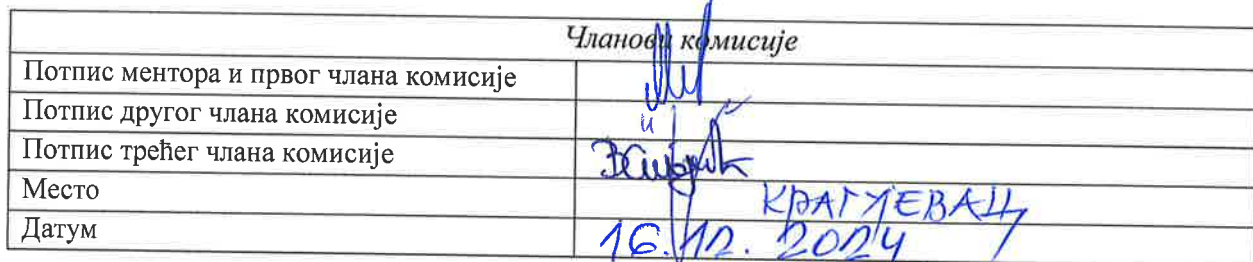 Чланови комисије
Потпис ментора и првог члана комисије
Потпис другог члана комисије
Потпис трећег члана комисије
Место КРАГУЈЕВАЦ
Датум 16.12.2024